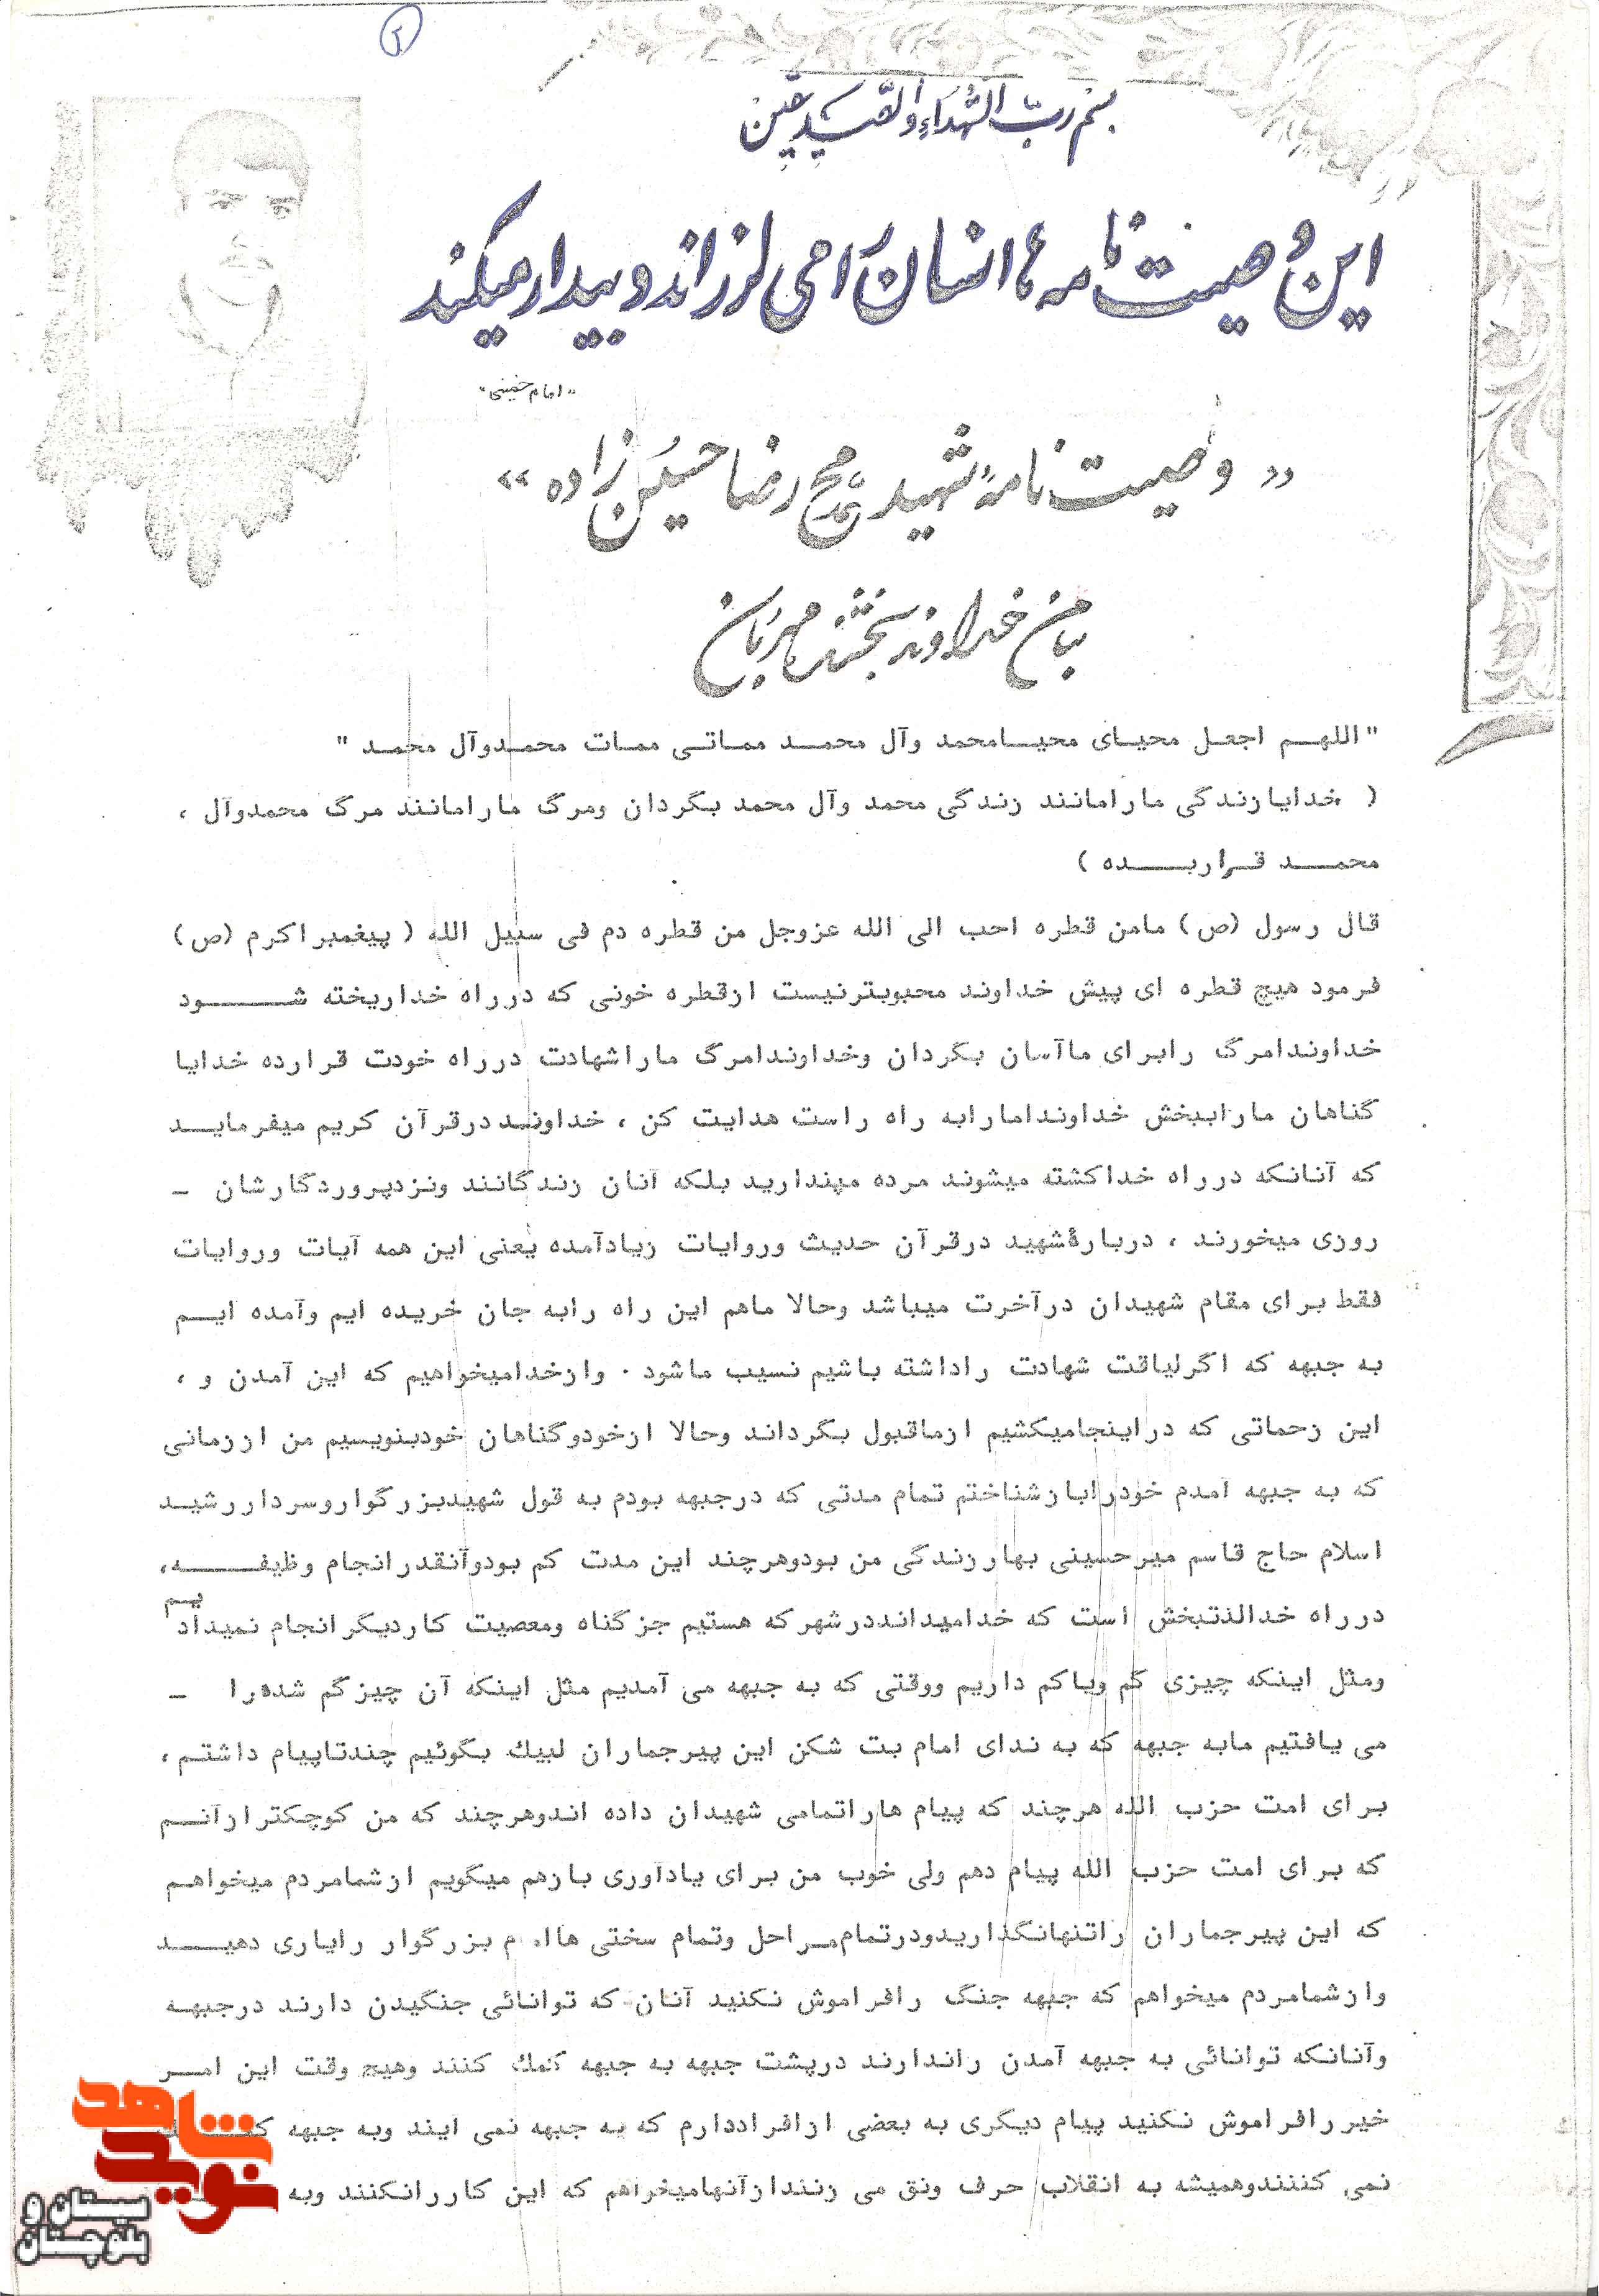 ۲
بسم ربّ الشّهداء والصّدیقین
این وصیت نامه ها انسان را می لرزاند و بیدار میکند
"امام خمینی"
« وصیت نامهٔ شهید محمد رضا حسین زاده »
بنام خداوند بخشنده مهربان
" اللهم اجعل محیای محیامحمد وآل محمد مماتی ممات محمدوآل محمد "
( خدایازندگی مارامانند زندگی محمد وآل محمد بگردان ومرگ مارامانند مرگ محمدوآل ،
محمد قراربده )
قال رسول (ص) مامن قطره احب الی الله عزوجل من قطره دم فی سبیل الله ( پیغمبراکرم (ص)
فرمود هیچ قطره ای پیش خداوند محبوبترنیست ازقطره خونی که درراه خداریخته شود
خداوندامرگ رابرای ماآسان بگردان وخداوندامرگ ماراشهادت درراه خودت قرارده خدایا
گناهان ماراببخش خداوندامارابه راه راست هدایت کن ، خداوند درقرآن کریم میفرماید
که آنانکه درراه خداکشته میشوند مرده مپندارید بلکه آنان زندگانند ونزدپروردگارشان -
روزی میخورند ، دربارهٔشهید درقرآن حدیث وروایات زیادآمده یعنی این همه آیات وروایات
فقط برای مقام شهیدان درآخرت میباشد وحالا ماهم این راه رابه جان خریده ایم وآمده ایم
به جبهه که اگرلیاقت شهادت راداشته باشیم نسیب ماشود . وازخدامیخواهیم که این آمدن و ،
این زحماتی که دراینجامیکشیم ازماقبول بگرداند وحالا ازخودوگناهان خودبنویسیم من اززمانی
که به جبهه آمدم خودراباز‌شناختم تمام مدتی که درجبهه بودم به قول شهیدبزرگواروسرداررشید
اسلام حاج قاسم میرحسینی بهارزندگی من بودوهرچند این مدت کم بودوآنقدرانجام وظیفه،
درراه خدالذتبخش است که خدامیدانددرشهرکه هستیم جزگناه ومعصیت کاردیگرانجام نمیدادیم
ومثل اینکه چیزی گم ویاکم داریم ووقتی که به جبهه می آمدیم مثل اینکه آن چیزگم شده‌را -
می یافتیم مابه جبهه که به ندای امام بت شکن این پیرجماران لبیک بگوئیم چندتاپیام داشتم ،
برای امت حزب الله هرچند که پیام هاراتمامی شهیدان داده اندوهرچند که من کوچکترازآنم
که برای امت حزب الله پیام دهم ولی خوب من برای یادآوری بازهم میگویم ازشمامردم میخواهم
که این پیرجماران راتنهانگذاریدودرتمام‌مراحل وتمام سختی هاا م بزرگوار رایاری دهید
وازشمامردم میخواهم که جبهه جنگ رافراموش نکنید آنان که توانائی جنگیدن دارند درجبهه
وآنانکه توانائی به جبهه آمدن راندارند درپشت جبهه به جبهه کمک کنند وهیچ وقت این امر
خیررافراموش نکنید پیام دیگری به بعضی ازافراددارم که به جبهه نمی ایند وبه جبهه کمک
نمی کننندوهمیشه به انقلاب حرف ونق می زنندازآنهامیخواهم که این کاررانکنند وبه
نوید شاهد
سیستان و
بلوچستان